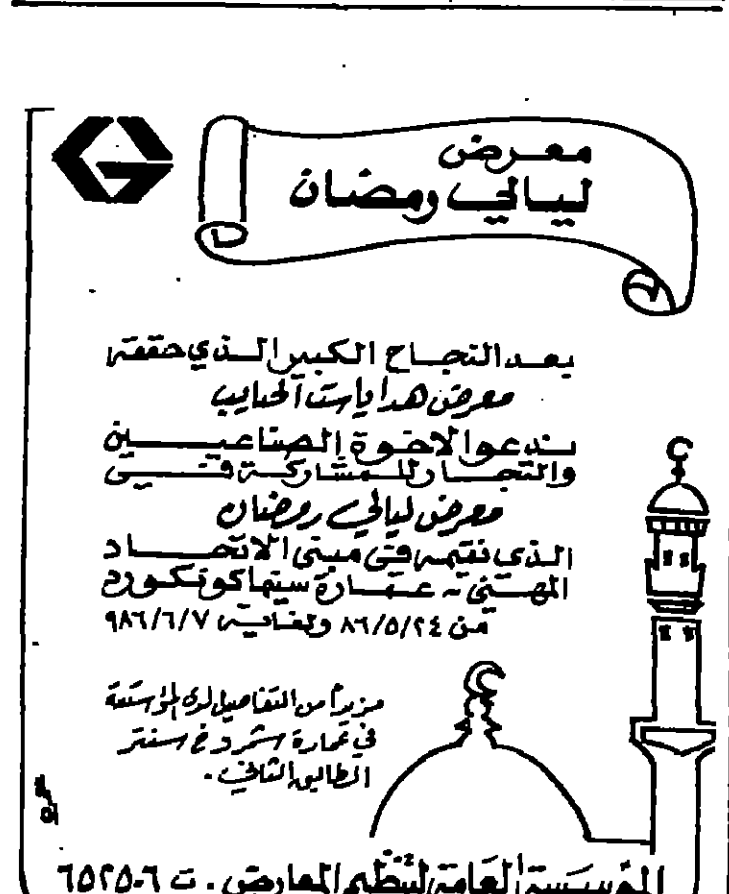 معرض
ليالي رمضان
بعد النجاح الكبير الذي حققه
معرض هدايا ست الحبايب
ندعوا الاخوة الصناعيين
والتجار للمشاركة في
معرض ليالي رمضان
الذي نقيمه في مبنى الاتحاد
المهني - عمارة سينما كونكورد
من ٨٦/٥/٢٤ ولغاية ٩٨٦/٦/٧
مزيداً من التفاصيل لدى المؤسسة
في عمارة سنتر
الطابق الثاني .
المؤسسة العامة لتنظيم المعارض . ت ٦٥٢٥٠٦